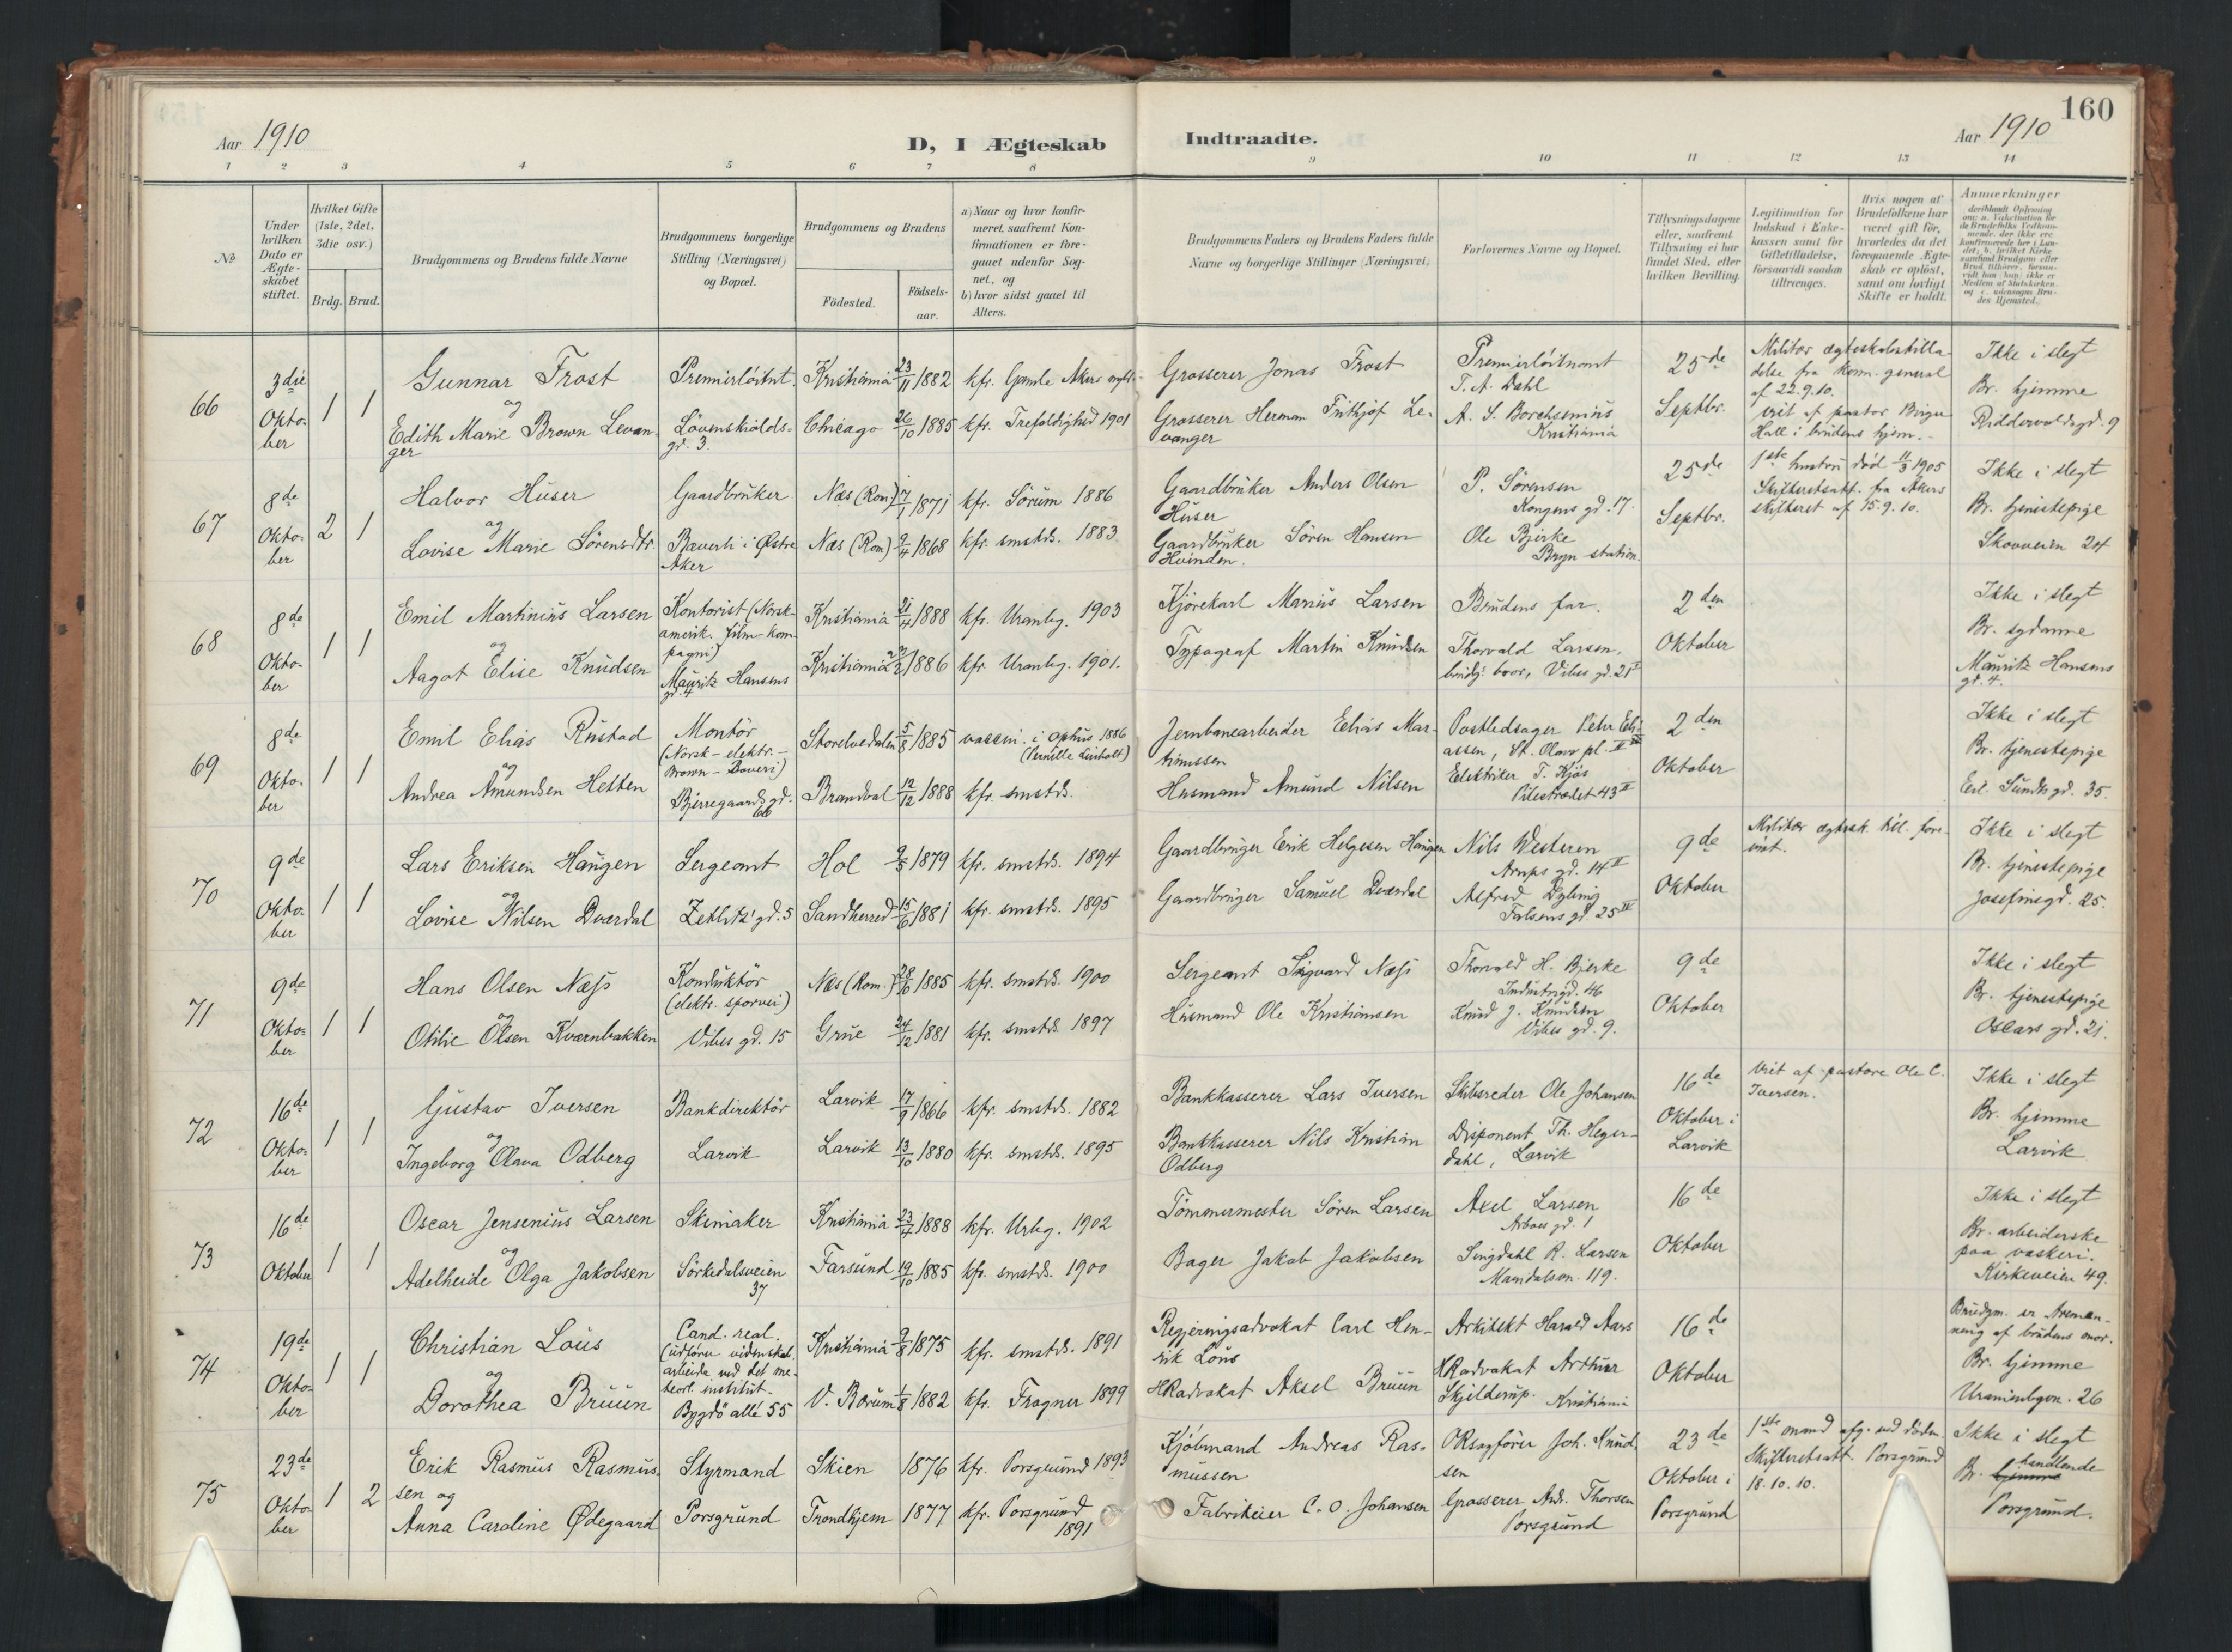 160
Aar 1910
D, I Ægteskab Indtraadte.
Aar 1910
1 2 3 4 5 6 7 8 9 10 11 12 13 14
No
Under hvilken Dato er Ægteskabet stiftet.
Hvilket Gifte (1ste, 2det, 3die osv.)
Brdg. Brud.
Brudgommens og Brudens fulde Navne
Brudgommens borgerlige Stilling (Næringsvei) og Bopæl.
Brudgommens og Brudens
Födested.
Födsels-aar.
a) Naar og hvor konfirmeret, saafremt Konfirmationen er foregaaet udenfor Sognet, og
b) hvor sidst gaaet til Alters.
Brudgommens Faders og Brudens Faders fulde Navne og borgerlige Stillinger (Næringsvei)
Forlovernes Navne og Bopæl.
Tillysningsdagene eller, saafremt Tillysning ei har fundet Sted, efter hvilken Bevilling.
Legitimation for Indskud i Enkekassen samt for Giftetilladelse, forsaavidt saadan tiltrænges.
Hvis nogen af Brudefolkene har været gift för, hvorledes da det foregaaende Ægteskab er oplöst, samt om lovligt Skifte er holdt.
Anmærkninger
66
3die Oktober
1 1
Gunnar Frost
og
Edith Marie Brown Levanger
Premierlöitnt.
Lövenskiolds=
gd. 3.
Kristiania 23/11 1882 kfr. Gamle Akers
Chicago 26/10 1885 kfr. Trefoldighed 1901
Grosserer Jonas Frost
Grosserer Herman Frithjof Levanger
Premierlöitnant
T. A. Dahl
A. S. Borchsenius
Kristiania
25de Septbr.
Militær ægteskabstilladelse fra Kom. general
af 22.9.10.
viet af pastor Birger
Hall i brudens hjem.
Ikke i slegt
Br. hjemme
Riddervoldsgd. 9
67
8de Oktober
2 1
Halvor Huser
og
Lovise Marie Sörensdtr.
Gaardbruker
Baverli i Østre Aker
Næs (Rom.) 7/1 1871 kfr. Sörum 1886
Næs (Rom) 9/4 1868 kfr. smstds. 1883
Gaardbruker Anders Olsen
Huser
Gaardbruker Sören Hansen
Hvinden.
P. Sörensen
Kongens gd. 17.
Ole Bjerke
Bryn station.
25de Septbr.
1ste hustru död 11/3 1905
Skifteretsatt. fra Akers
skifteret af 15.9.10.
Ikke i slegt
Br. tjenestepige
Skovveien 24
68
8de Oktober
1 1
Emil Martinius Larsen
og
Aagot Elise Knudsen
Kontorist (Norsk-
amerik. film-kom-
pagni)
Mauritz Hansens
gd. 4
Kristiania 21/4 1888 kfr. Uranbg. 1903
Kristiania 1886 kfr. Uranbg. 1901.
Kjörekarl Marius Larsen
Typograf Martin Knudsen
Brudens far.
Thorvald Larsen,
brudg. bror, Vibes gd. 21
2den Oktober
Ikke i slegt
Br. sydame
Mauritz Hansens
gd. 4.
69
8de Oktober
1 1
Emil Elias Rustad
og
Andrea Amundsen Hetten
Montör
(Norsk-elektr.-
Brown-Boveri)
Bjerregaards gd.
Storelvedalen 5/8 1885 vaccin. i Ophus 1886
Brandval 12/12 1888 kfr. smstds.
Jernbanearbeider Elias Martinussen
Husmand Amund Nilsen
Postledsager Peter Eliassen, St. Olavs pl.
Elektriker T. Kjös
Pilestrædet 43 II
2den Oktober
Ikke i slegt
Br. tjenestepige
Eil. Sundts gd. 35.
70
9de Oktober
1 1
Lars Eriksen Haugen
og
Lovise Nilsen Dværdal
Sergeant
Zetlitz' gd. 5
Hol 9/5 1879 kfr. smstds. 1894
Sandherred 15/6 1881 kfr. smstds. 1895
Gaardbruger Erik Helgesen Haugen
Gaardbruger Samuel Dværdal
Nils Westeren
Arups gd. 14 II
Alfred Dybing
Falsens gd. 25
9de Oktober
Militær ægtesk. till. forevist.
Ikke i slegt
Br. tjenestepige
Josefinesgd. 25.
71
9de Oktober
1 1
Hans Olsen Næss
og
Otilie Olsen Kværnbakken
Konduktör
(elektr. sporvei)
Vibes gd. 15
Næs (Rom.) 1885 kfr. smstds. 1900
Grue 24/12 1881 kfr. smstds. 1897
Sergeant Sigvard Næss
Husmand Ole Kristiansen
Thorvald H. Bjerke
Industrigd. 46
Knud J. Knudsen
Vibes gd. 9.
9de Oktober
Ikke i slegt
Br. tjenestepige
Oscars gd. 21.
72
16de Oktober
1 1
Gustav Iversen
og
Ingeborg Olava Odberg
Bankdirektör
Larvik
Larvik 17/9 1866 kfr. smstds. 1882
Larvik 13/10 1880 kfr. smstds. 1895
Bankkasserer Lars Iversen
Bankkasserer Nils Kristian
Odberg
Skibsreder Ole Johansen
Disponent Th. Heyerdahl, Larvik
16de Oktober i
Larvik
Viet af pastor Ole C.
Iversen.
Ikke i slegt
Br. hjemme
Larvik
73
16de Oktober
1 1
Oscar Jensenius Larsen
og
Adelheide Olga Jakobsen
Skimaker
Sörkedalsveien
37
Kristiania 1888 kfr. Urbg. 1902
Farsund 19/10 1885 kfr. smstds. 1900
Tömmermester Sören Larsen
Bager Jakob Jakobsen
Axel Larsen
Arbos gd. 1
R. Larsen
119.
16de Oktober
Ikke i slegt
Br. arbeiderske
paa vaskeri.
Kirkeveien 49.
74
19de Oktober
1 1
Christian Lous
og
Dorothea Bruun
Cand. real.
(udförer vidensk.
arbeide ved det meteorl. institut-
Bygdö allé 55
Kristiania 9/8 1875 kfr. smstds. 1891
V. Bærum 1/8 1882 kfr. Frogner 1899
Regjeringsadvokat Carl Henrik Lous
HRadvokat Aksel Bruun
Arkitekt Harald Aars
HRadvokat Arthur
Skjelderup. Kristiania
16de Oktober
Brudgm. er
af brudens mor.
Br. hjemme
Uranienbgvn. 26
75
23de Oktober
1 2
Erik Rasmus Rasmussen og
Anna Caroline Ødegaard
Styrmand
Porsgrund
Skien 1876 kfr. Porsgrund 1893
Trondhjem 1877 kfr. Porsgrund
1891
Kjöbmand Andreas Rasmussen
Fabrikeier C. O. Johansen
ORsagförer Joh. Knudsen
Grosserer And. Thorsen
Porsgrund
23de Oktober i
Porsgrund
1ste mand afg. ved döden.
Skifteretsatt. Porsgrund
18.10.10.
Ikke i slegt
Br. handlende
Porsgrund.